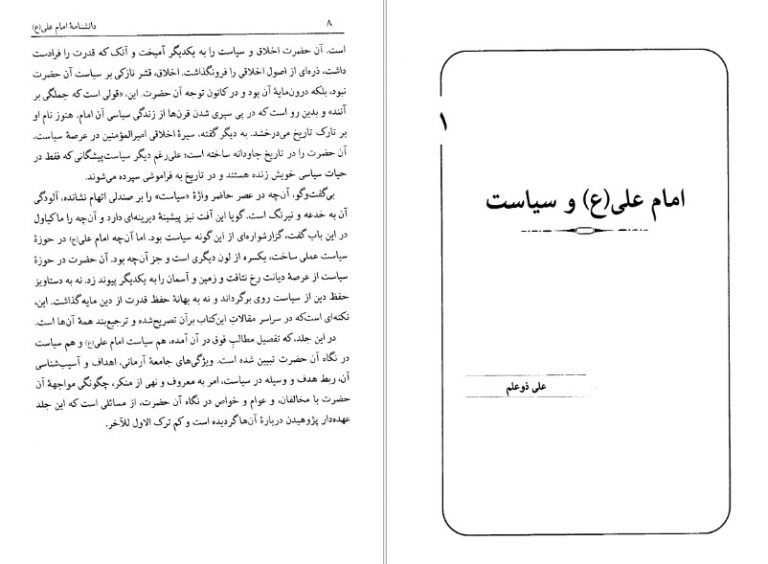 ۸ دانشنامهٔ امام علی(ع)
است. آن حضرت اخلاق و سیاست را به یکدیگر آمیخت و آنک که قدرت را فرادست
داشت، ذره‌ای از اصول اخلاقی را فرونگذاشت. اخلاق، قشر نازکی بر سیاست آن حضرت
نبود، بلکه درون‌مایهٔ آن بود و در کانون توجه آن حضرت. این، «قولی است که جملگی بر
آنند» و بدین رو است که در پی سپری شدن قرن‌ها از زندگی سیاسی آن امام، هنوز نام او
بر تارک تاریخ می‌درخشد. به دیگر گفته، سیرهٔ اخلاقی امیرالمؤمنین در عرصهٔ سیاست،
آن حضرت را در تاریخ جاودانه ساخته است؛ علی‌رغم دیگر سیاست‌پیشگانی که فقط در
حیات سیاسی خویش زنده هستند و در تاریخ به فراموشی سپرده می‌شوند.
بی‌گفت‌وگو، آن‌چه در عصر حاضر واژهٔ «سیاست» را بر صندلی اتهام نشانده، آلودگی
آن به خدعه و نیرنگ است. گویا این آفت نیز پیشینهٔ دیرینه‌ای دارد و آن‌چه را ماکیاول
در این باب گفت، گزارشواره‌ای از این گونه سیاست بود. اما آن‌چه امام علی(ع) در حوزهٔ
سیاست عملی ساخت، یکسره از لون دیگری است و جز آن‌چه بود. آن حضرت در حوزهٔ
سیاست از عرصهٔ دیانت رخ نتافت و زمین و آسمان را به یکدیگر پیوند زد. نه به دستاویز
حفظ دین از سیاست روی برگرداند و نه به بهانهٔ حفظ قدرت از دین مایه گذاشت. این،
نکته‌ای است که در سراسر مقالاتِ این کتاب بر آن تصریح شده و ترجیع‌بند همهٔ آن‌ها است.
در این جلد، که تفصیل مطالبِ فوق در آن آمده، هم سیاست امام علی(ع) و هم سیاست
در نگاه آن حضرت تبیین شده است. ویژگی‌های جامعهٔ آرمانی، اهداف و آسیب‌شناسی
آن، ربط هدف و وسیله در سیاست، امر به معروف و نهی از منکر، چگونگی مواجههٔ آن
حضرت با مخالفان، و عوام و خواص در نگاه آن حضرت، از مسائلی است که این جلد
عهده‌دار پژوهیدن دربارهٔ آن‌ها گردیده است و کم ترک الاول للآخر.
۱
امام علی(ع) و سیاست
علی ذوعلم